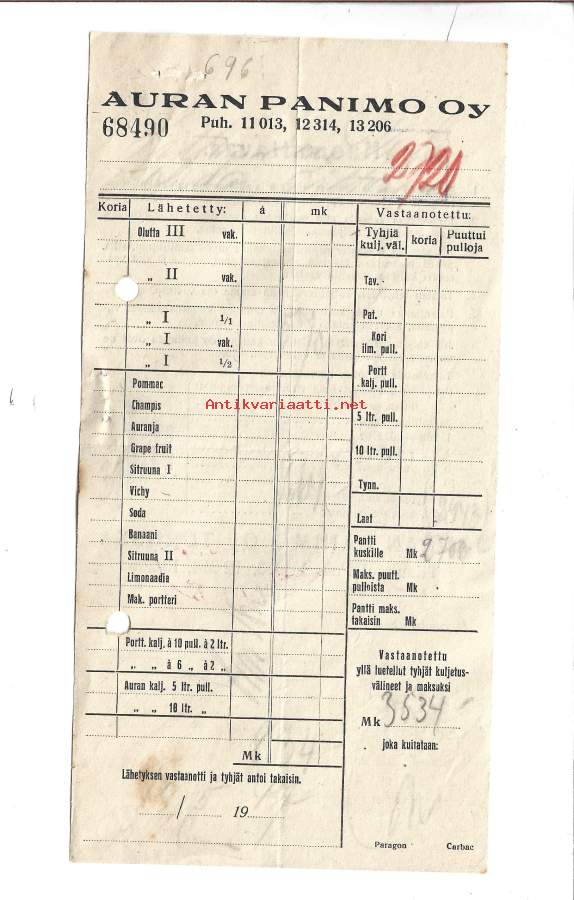 696
AURAN PANIMO Oy
68490 Puh. 11 013, 12 314, 13 206
Koria Lähetetty: à mk
Olutta III vak.
„ II vak.
„ I 1/1
„ I vak.
„ I 1/2
Pommac
Champis
Auranja
Grape fruit
Sitruuna I
Vichy
Soda
Banaani
Sitruuna II
Limonaadia
Mak. portteri
Portt. kalj. à 10 pull. à 2 ltr.
„ „ à 6 „ à 2 „
Auran kalj. 5 ltr. pull.
„ „ 10 ltr. „
Mk
Lähetyksen vastaanotti ja tyhjät antoi takaisin.
/ 19
Vastaanotettu:
Tyhjiä kulj. väl. koria Puuttui pulloja
Tav.
Pat.
Kori
ilm. pull.
Portt
kalj. pull.
5 ltr. pull.
10 ltr. pull.
Tynn.
Laat
Pantti
kuskille Mk 2700
Maks. puutt.
pulloista Mk
Pantti maks.
takaisin Mk
Vastaanotettu
yllä luetellut tyhjät kuljetus-
välineet ja maksuksi
Mk 3534
joka kuitataan:
Paragon Carbac
Antikvariaatti.net